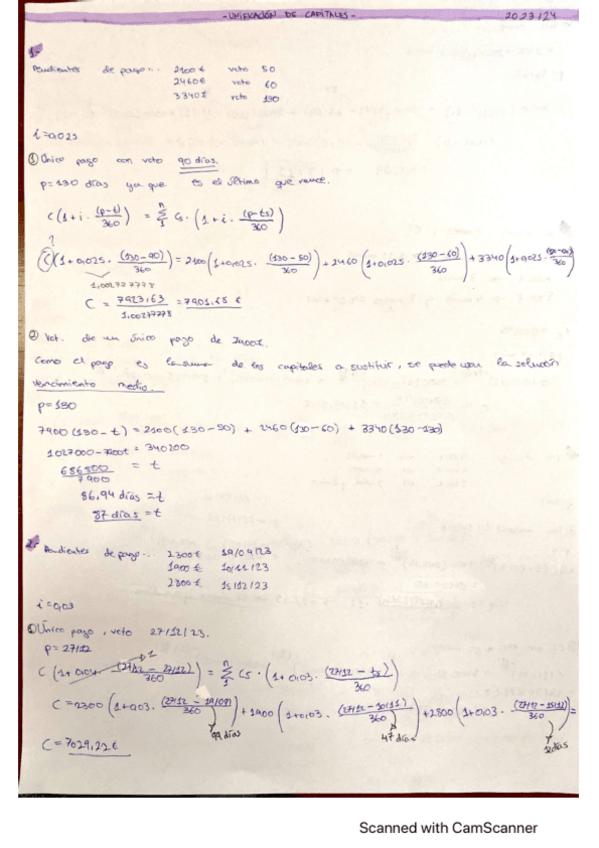 -UNIFICACIÓN DE CAPITALES- 2023/24
1.-
Pendientes de pago... 2100€ vcto 50
2460€ vcto 60
3340€ vcto 130
i=0,025
① Único pago con vcto 90 días.
p=130 días ya que es el último que vence.
C(1+i·(p-t)/360) = Σ Cs·(1+i·(p-ts)/360)
?
C(1+0,025·(130-90)/360) = 2100(1+0,025·(130-50)/360)+2460(1+0,025·(130-60)/360)+3340(1+0,025·
1,002777778
C = 7923,63/1,00277778 = 7901,68 €
② Vct. de un único pago de 7900€.
Como el pago es la suma de los capitales a sustituir, se puede usar la solución
vencimiento medio.
p=130
7900(130-t) = 2100(130-50) + 2460(130-60) + 3340(130-130)
1027000-7900t = 340200
686800/7900 = t
86,94 días = t
87 días = t
2.-
Pendientes de pago... 2300€ 19/09/23
1900€ 10/11/23
2800€ 15/12/23
i=0,03
① Único pago, vcto 27/12/23.
p=27/12
C(1+0,03·(27/12-27/12)/360) = Σ Cs·(1+0,03·(27/12-ts)/360)
C=2300(1+0,03·(27/12-19/09)/360)+1900(1+0,03·(27/12-10/11)/360)+2800(1+0,03·(27/12-15/12)/360)=
99 días 47 días 12 días
C=7029,22€
Scanned with CamScanner